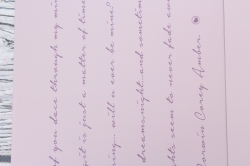 of you dace through my mi
it is just a matter of time
ing... will u ever be mine?
dreams.night and sometim
hts seem to never fade aw
Corey Amber